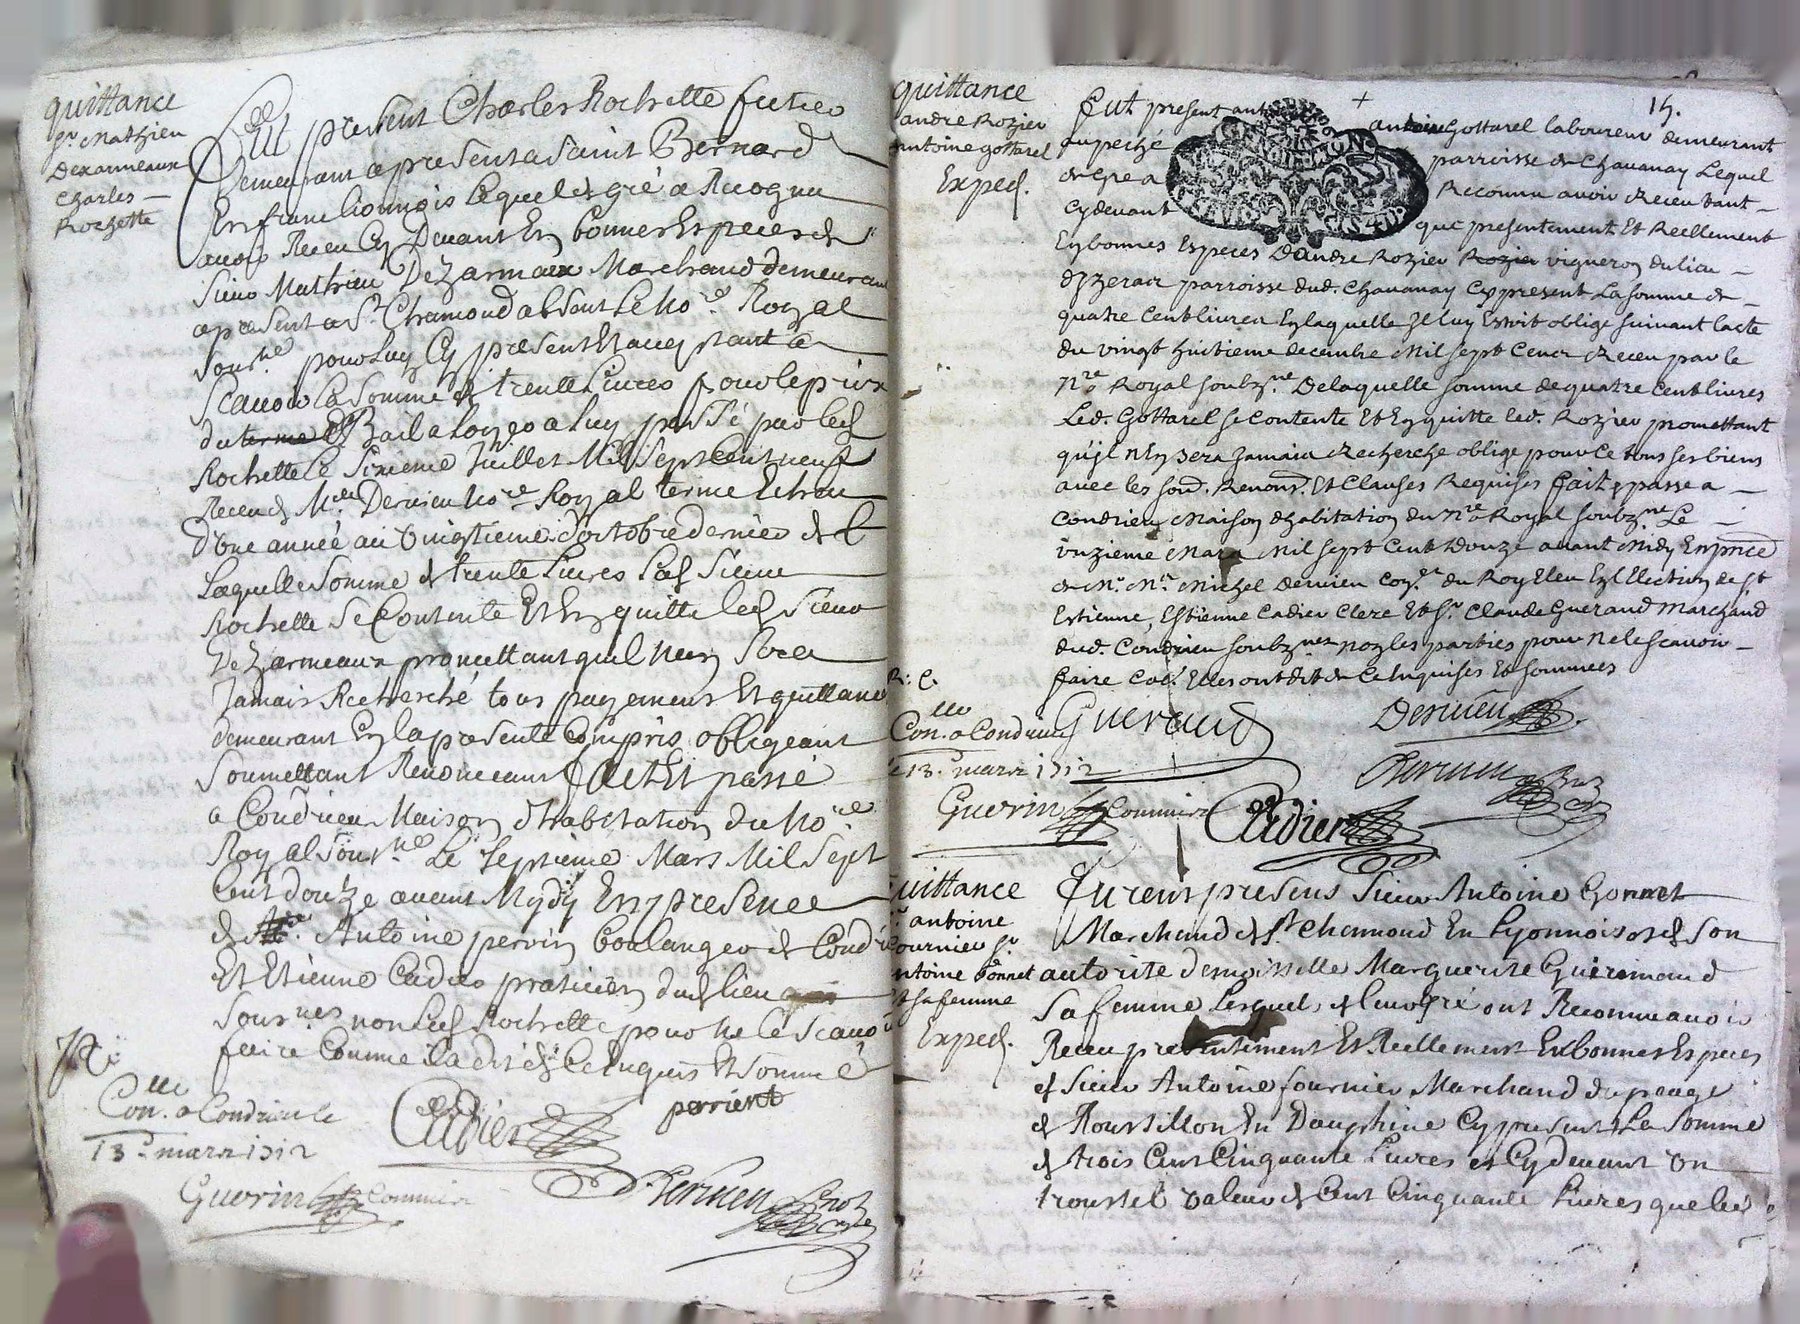 quittance
Sr. Mathieu
Dexarmeaux
Charles
Rochette
Fut present Charles Rochette futier
demeurant a present a Saint Bernard
En franc lionnois lequel de gré a Recognu
avoir Receu Cy Devant En bonnes Especes de
Sieur Mathieu Dezarmaux Marchand demeurant
a present a St. Chamond absent le No.re Royal
sous.ne pour luy Cy present Et acceptant a
Scavoir la Somme de trente Livres pour le prix
du terme de Bail a loyer a luy passé par led
Rochette le Sixieme Juillet Mil Sept Cent neuf
Receu de Me. Dervieu No.re Royal terme Echeu
d'une année au vingtieme d'octobre dernier de
Laquelle Somme de trente Livres led Sieur
Rochette Se Contente Et En quitte led Sieur
Dezarmeaux promettant quil Nen Sera
Jamais Recherché tous payemens Et quittance
demeurant En la presente Compris obligeant
Soumettant Renonceant fait Et passé
a Condrieu Maison d'habitation du No.re
Royal Sous.ne Le Septieme Mars Mil Sept
Cent douze avant Mydy En presence
de Antoine pervin boulanger de Condrieu
Et Etienne Cadier praticien dud lieu
Sous.nes non led Rochette pour ne le Scavoir
faire Comme il a dit de Ce Enquis Et Sommé
Con.lle a Condrieu le
13.e mars 1712
Guerin Commis
Cadier
perrient
Dervieu
quittance
andre Rozier
antoine gottarel
Exped.
15.
Fut present
antoine Gottarel laboureur demeurant
au peché
parroisse de Chavanay Lequel
de gre a
Reconnu avoir Receu tant
Cydevant
que presentement Et Reellement
En bonnes Especes D'andre Rozier Rozier vigneron du lieu
d'Izerac parroisse dud. Chavanay Cy present La somme de
quatre Cent livres En laquelle Il luy Estoit obligé suivant lacte
du vingt huitieme decembre Mil sept Cent Receu par le
N.re Royal soubz.ne De laquelle somme de quatre Cent livres
Led. Gottarel se Contente Et En quitte led. Rozier promettant
qu'il N'En sera Jamais Recherche oblige pour Ce tous ses biens
avec les soud. Renond. Et Clauses Requises fait & passe a
Condrieu Maison d'habitation du N.re Royal soubz.ne Le
unzieme Mars Mil sept Cent Douze avant Midy En pnce
de Mr. Me. Michel Dervieu Con.er du Roy Eleu En l'Election de St
Estienne, Estienne Cadier Clerc Et Sr. Claude Gueraud Marchand
dud. Condrieu soubz.nes non les parties pour ne le scavoir
faire Elles ont dit de Ce Enquises Et sommees
Con.lle a Condrieu
le 13.e mars 1712
Guerin Commis
Gueraud
Dervieu
Dervieu
Cadier
quittance
antoine
fournier Sr.
antoine Gonnet
Et sa femme
Exped.
Furent presens Sieur Antoine Gonnet
Marchand de St. Chamond En Lyonnois et de Son
autorite demoiselle Marguerite Guerimand
Sa femme Lesquels de leur gré ont Reconneu avoir
Receu presentement Et Reellement En bonnes Especes
de Sieur Antoine fournier Marchand du peage
de Roussillon En Dauphine Cy present La Somme
de trois Cent Cinquante Livres et Cy devant un
troussel valeur de Cent Cinquante Livres que led